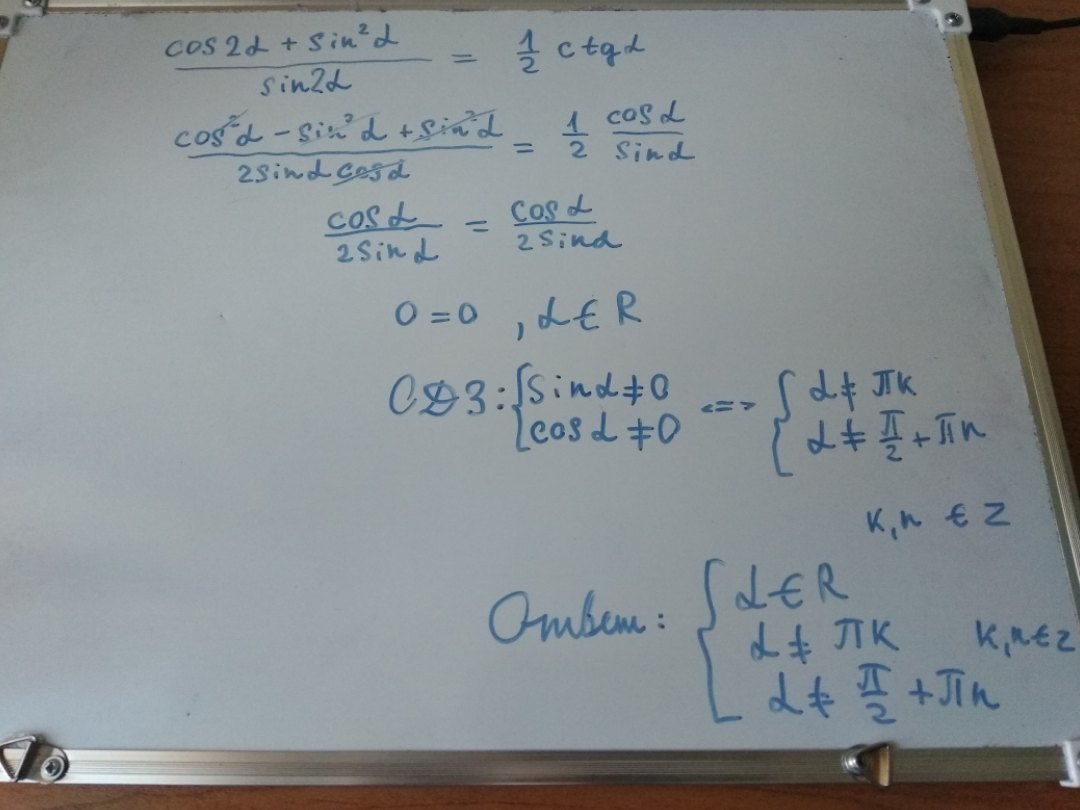 cos2α + sin²α / sin2α = 1/2 ctgα
cos²α - sin²α + sin²α / 2sinα cosα = 1/2 cosα/sinα
cosα / 2sinα = cosα / 2sinα
0=0 , α∈R
ОДЗ: { sinα≠0 cosα≠0 <=> { α≠ πk α≠ π/2 + πn
k,n ∈ Z
Ответ: { α∈R
α≠ πk k,n∈Z
α≠ π/2 + πn